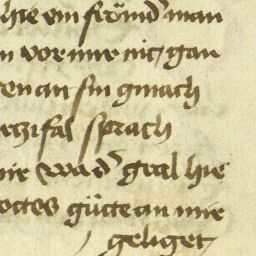 hie ein frömd man
n vor mir nit gan
en an sin gmach
rzifal sprach
ir wa d' gral hie
ottes gütte an mir
geliget